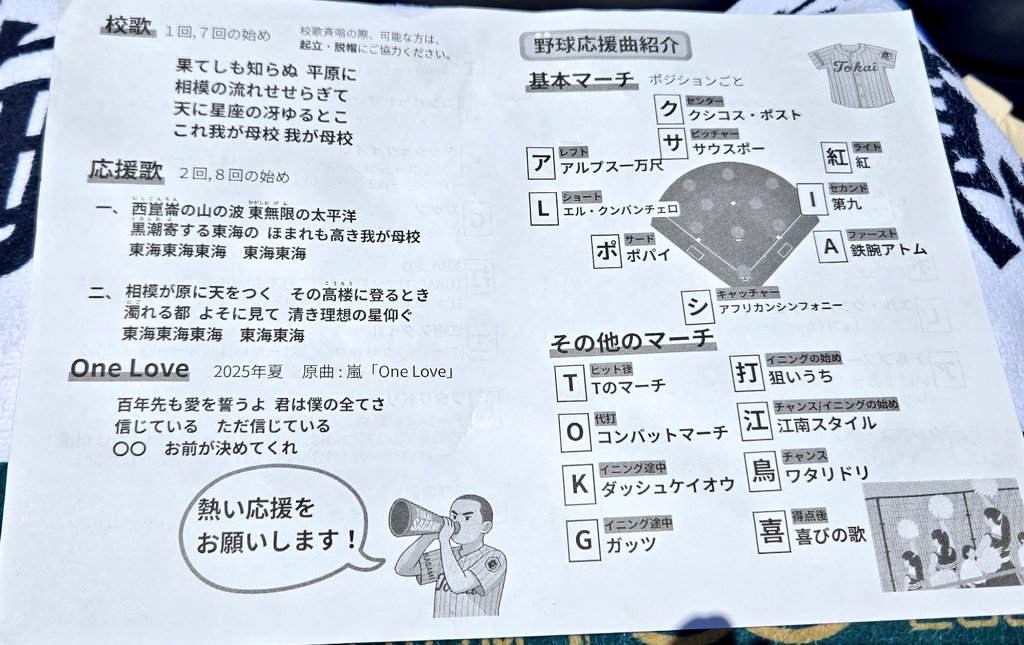 校歌 1回,7回の始め
校歌斉唱の際、可能な方は、
起立・脱帽にご協力ください。
果てしも知らぬ 平原に
相模の流れせせらぎて
天に星座の冴ゆるとこ
これ我が母校 我が母校
応援歌 2回,8回の始め
にしこんろん ひがしむげん
一、西崑崙の山の波 東無限の太平洋
くろしおよ
黒潮寄する東海の ほまれも高き我が母校
東海東海東海 東海東海
こうろう
二、相模が原に天をつく その高楼に登るとき
にご
濁れる都 よそに見て 清き理想の星仰ぐ
東海東海東海 東海東海
One Love 2025年夏 原曲：嵐「One Love」
百年先も愛を誓うよ 君は僕の全てさ
信じている ただ信じている
〇〇 お前が決めてくれ
熱い応援を
お願いします！
SAGAMI
野球応援曲紹介
Tokai
基本マーチ ポジションごと
ク センター
クシコス・ポスト
サ ピッチャー
サウスポー
ア レフト
アルプス一万尺
紅 ライト
紅
L ショート
エル・クンバンチェロ
I セカンド
第九
ポ サード
ポパイ
A ファースト
鉄腕アトム
シ キャッチャー
アフリカンシンフォニー
その他のマーチ
T ヒット後
Tのマーチ
打 イニングの始め
狙いうち
O 代打
コンバットマーチ
江 チャンス/イニングの始め
江南スタイル
K イニング途中
ダッシュケイオウ
鳥 チャンス
ワタリドリ
G イニング途中
ガッツ
喜 得点後
喜びの歌